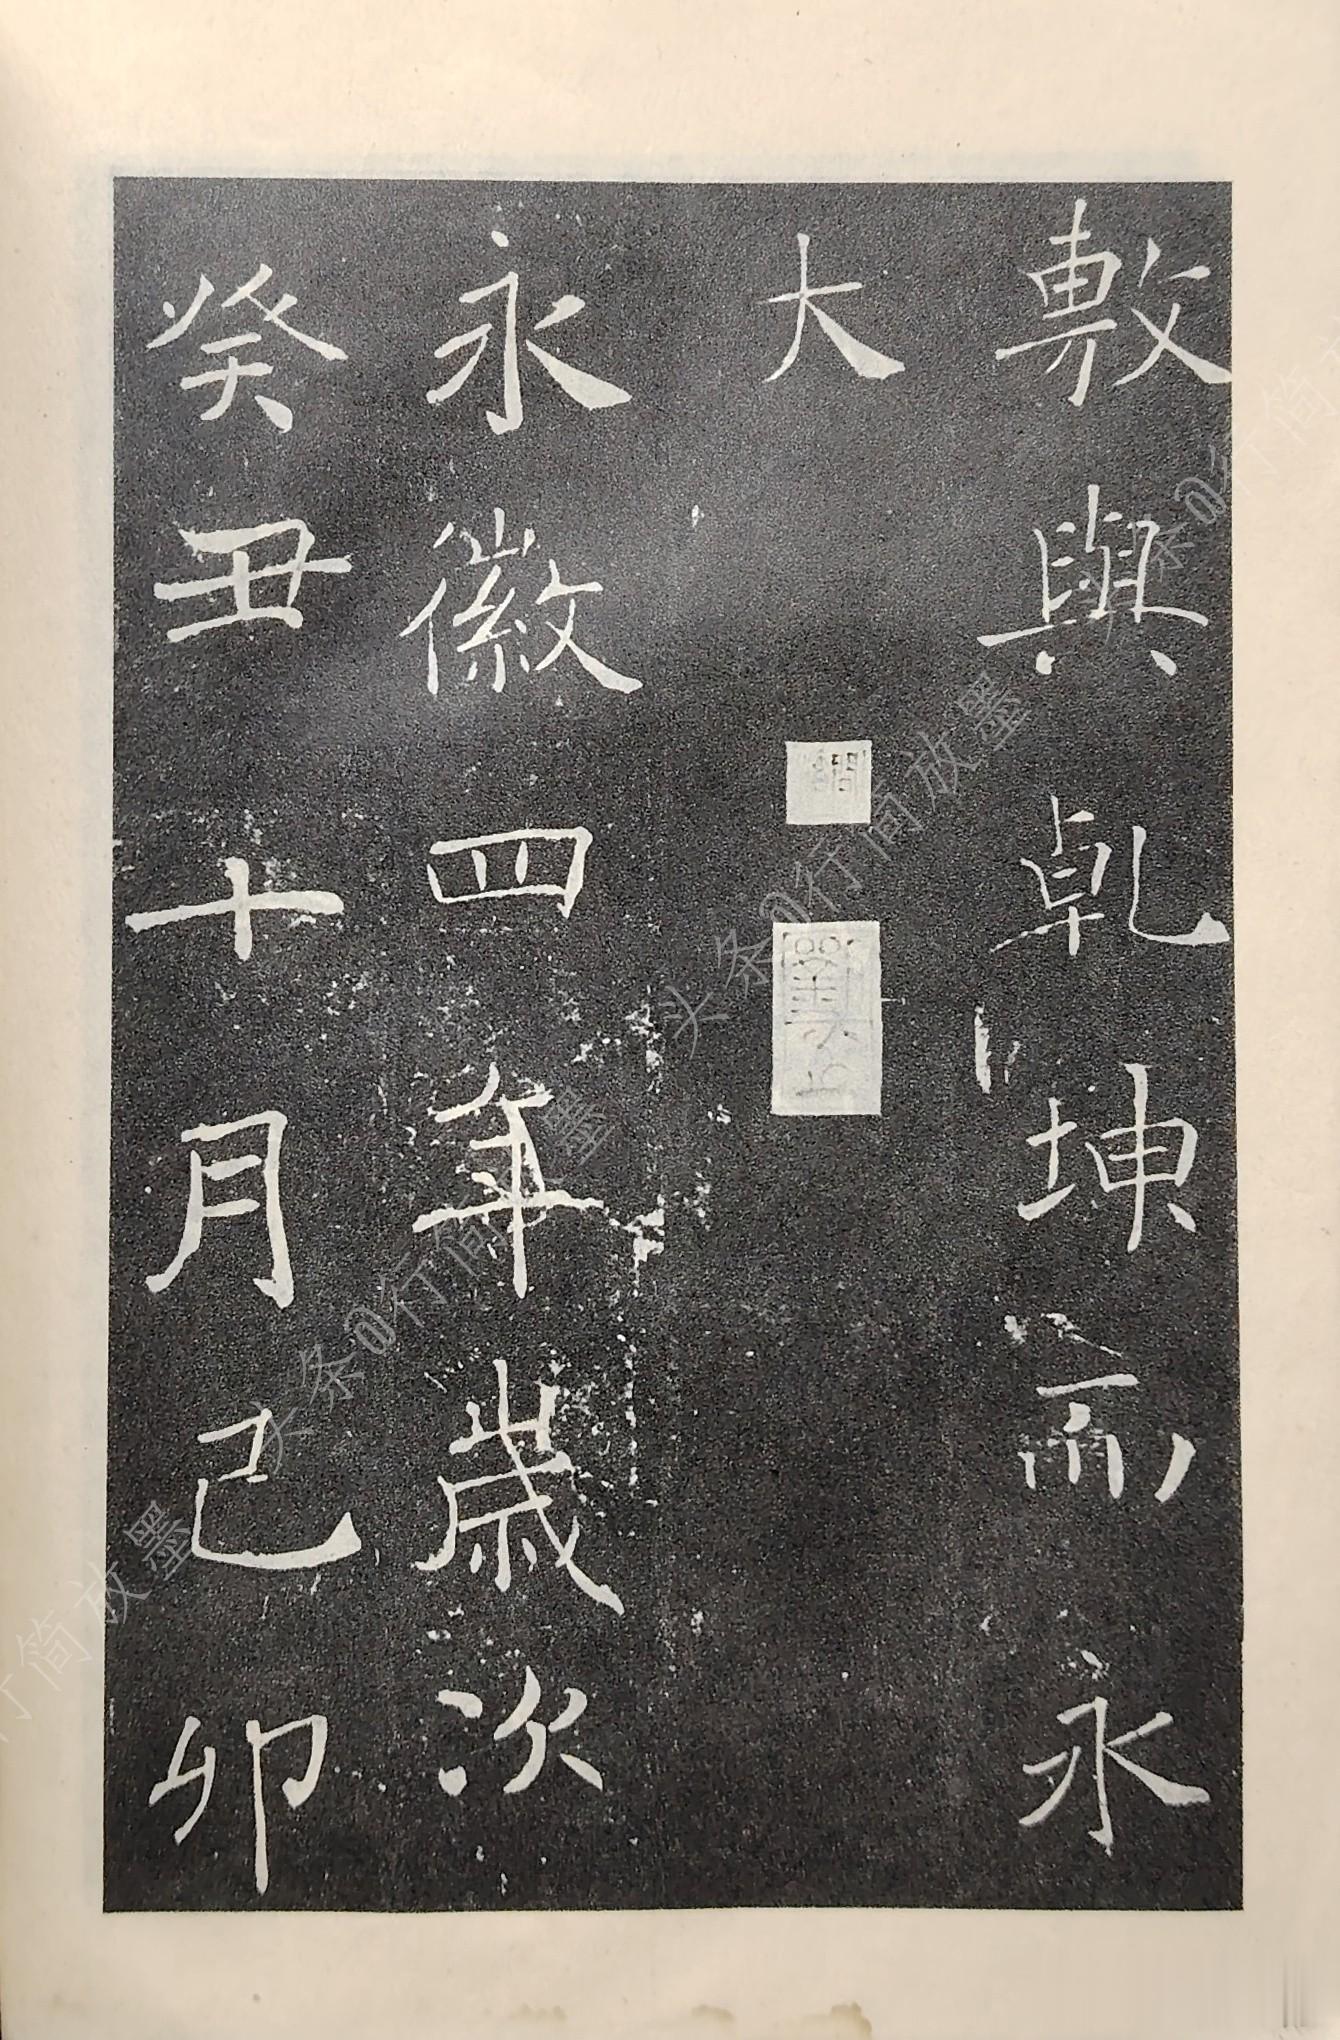 敷與乾坤而永
大
永徽四年歲次
癸丑十月己卯
头条@行简放墨
头条@行简放墨
头条@行简放墨
行简放墨